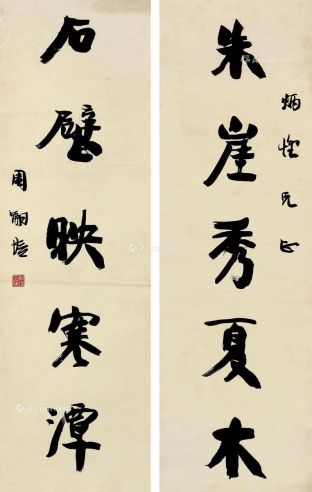 炳兄正
朱崖秀夏木
石壁映寒潭
周嗣